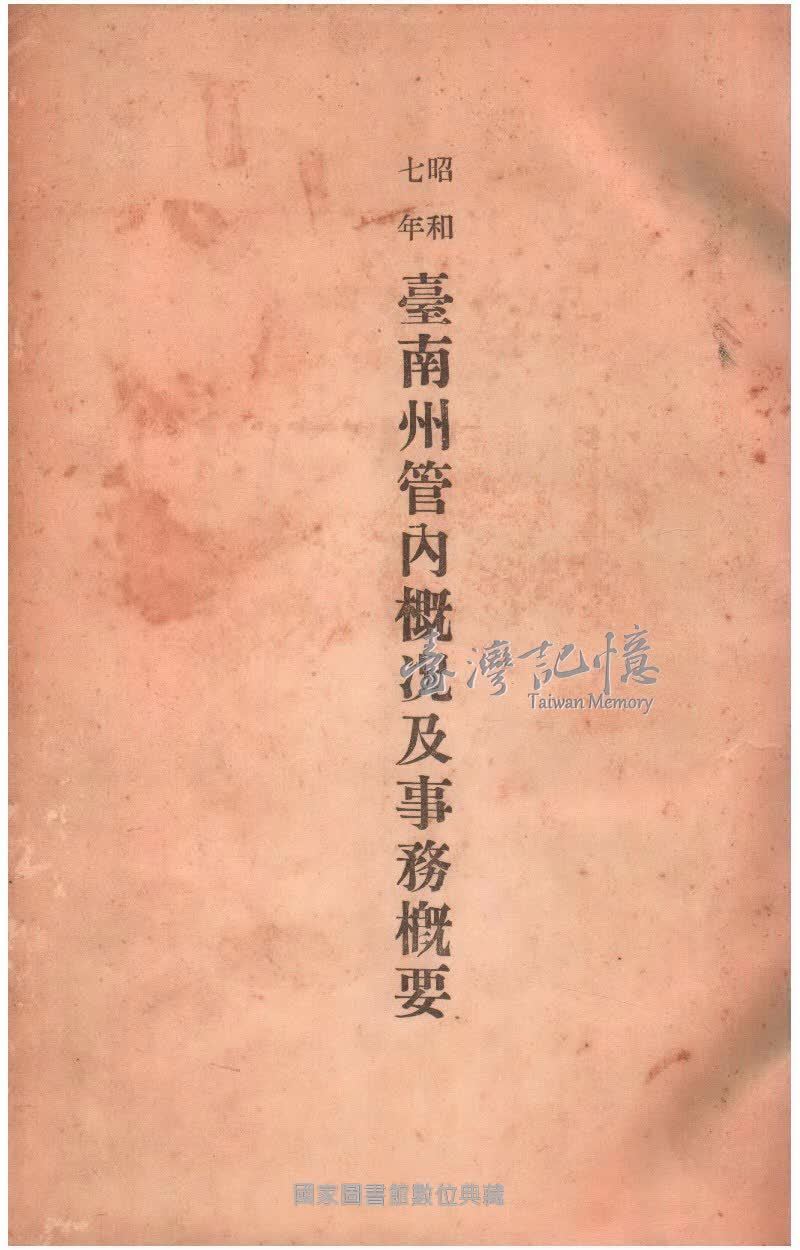 昭和
七年
臺南州管內概況及事務概要
臺灣記憶
Taiwan Memory
國家圖書館數位典藏